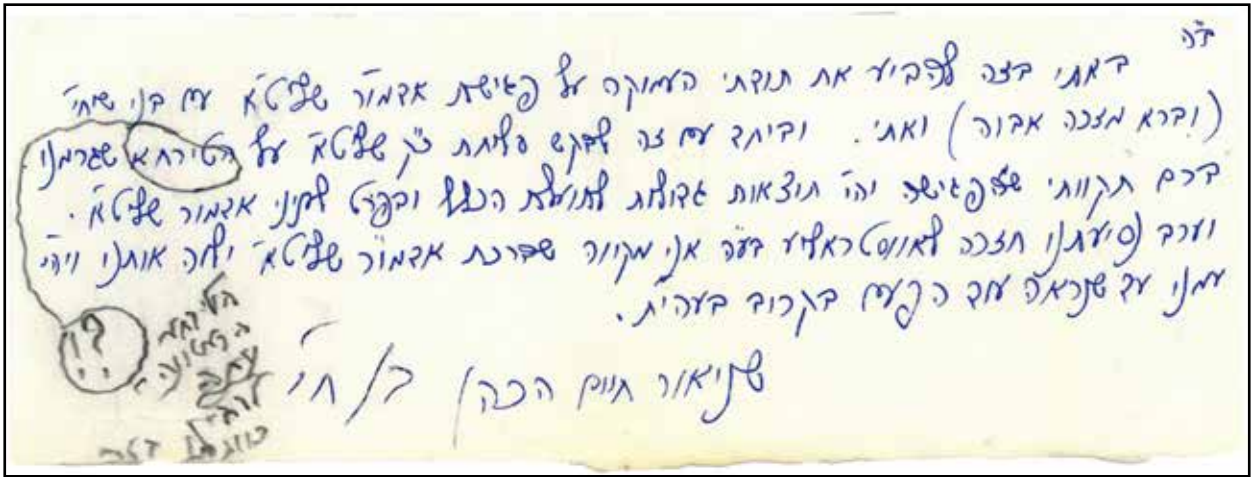 ב"ה
באתי בזה להביע את תודתי העמוקה על פגישת אדמו"ר שליט"א עם בני שיחי'
(וברא מזכה אבוה) ואתי. וביחד עם זה לבקש סליחת כ"ק שליט"א על הטירחא שגרמנו
ברם תקוותי שלפגישה יהי' תוצאות גדולות לתועלת הכלל ובפרט לעניני אדמו"ר שליט"א.
וערב נסיעתנו חזרה לאווסטראליע בע"ה אני מקווה שברכת אדמו"ר שליט"א ילוה אותנו ויהי'
עמנו עד שנראה עוד הפעם בקרוב בעהי"ת.
שניאור חיים הכהן
?!